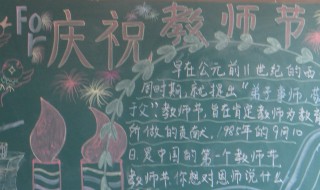 For
庆祝教师节
早在公元前11世纪的西
周时期,就提出"弟子事师,敬
于父"教师节,旨在肯定教师为教育
所做的贡献,1985年的9月10
日是中国的第一个教师节,
教师节,你想对恩师说什么